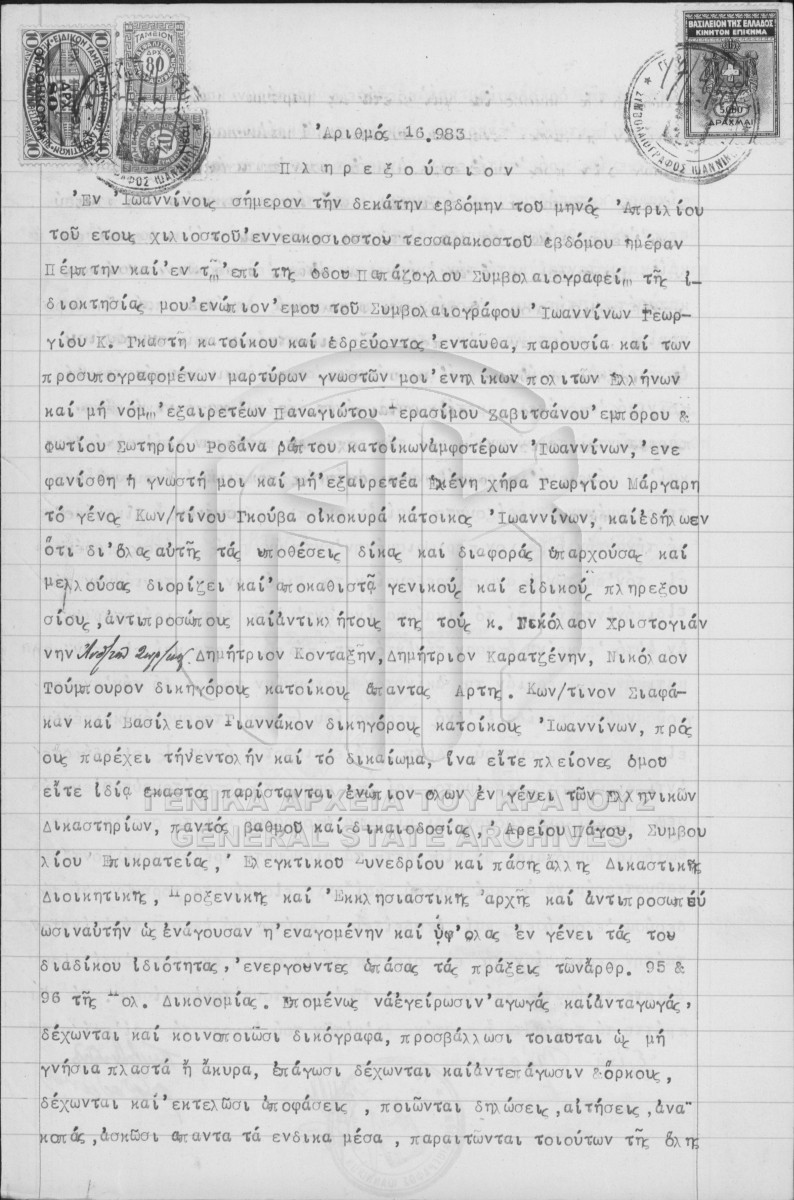 ΒΑΣΙΛΕΙΟΝ ΤΗΣ ΕΛΛΑΔΟΣ
ΚΙΝΗΤΟΝ ΕΠΙΣΗΜΑ
ΔΡΑΧΜΑΙ
Ἀριθμός 16.983
Πληρεξούσιον
Ἐν Ἰωαννίνοις σήμερον τήν δεκάτην εβδόμην τοῦ μηνός Ἀπριλίου
τοῦ ετους χιλιοστοῦ ἐννεακοσιοστου τεσσαρακοστοῦ εβδόμου ημέραν
Πέμπτην καί ἐν τῷ ἐπί της όδου Παπάζογλου Συμβολαιογραφείῳ τῆς ἰ-
διοκτησίας μου ἐνώπιον ἐμου τοῦ Συμβολαιογράφου Ἰωαννίνων Γεωρ-
γίου Κ. Γκαστῆ κατοίκου καί ἑδρεύοντος ἐνταυθα, παρουσία καί των
προσυπογραφομένων μαρτύρων γνωστῶν μοι ἐνηλίκων πολιτων Ελλήνων
καί μή νόμῳ ἐξαιρετέων Παναγιώτου Γερασίμου Ζαβιτσάνου ἐμπόρου &
Φωτίου Σωτηρίου Ροδάνα ράπτου κατοίκων ἀμφοτέρων Ἰωαννίνων, ἐνε
φανίσθη ἡ γνωστή μοι καί μή ἐξαιρετέα Ελένη χήρα Γεωργίου Μάργαρη
τό γένος Κων/τίνου Γκούβα οἰκοκυρά κάτοικος Ἰωαννίνων, καί ἐδήλωεν
ὅτι δι' ὅλας αὐτῆς τάς υποθέσεις δίκας και διαφοράς ὑπαρχούσας καί
μελλούσας διορίζει καί ἀποκαθιστᾷ γενικούς και εἰδικούς πληρεξου
σίους, ἀντιπροσώπους καί ἀντικλήτους της τούς κ. Νικόλαον Χριστογιάν
νην Δημήτριον Κονταξῆν, Δημήτριον Καρατζένην, Νικόλαον
Τούμπουρον δικηγόρους κατοίκους ἅπαντας Αρτης. Κων/τινον Σιαφά-
καν καί Βασίλειον Γιαννάκον δικηγόρους κατοίκους Ἰωαννίνων, πρός
οὓς παρέχει τήν ἐντολήν καί τό δικαίωμα, ἵνα εἴτε πλείονες ὁμου
εἴτε ἰδίᾳ εκαστος παρίστανται ἐνώπιον ολων ἐν γένει τῶν Ελληνικῶν
Δικαστηρίων, παντός βαθμοῦ καί δικαιοδοσίας, Ἀρείου Πάγου, Συμβου
λίου Ἐπικρατείας, Ἐλεγκτικοῦ Συνεδρίου καί πάσης ἄλλης Δικαστικῆς
Διοικητικῆς, Προξενικης καί Ἐκκλησιαστικης ἀρχῆς καί ἀντιπροσωπεύ
ωσιν αὐτήν ὡς ἐνάγουσαν η ἐναγομένην καί ὑφ' ολας ἐν γένει τάς του
διαδίκου ἰδιότητας, ἐνεργουντες ἁπάσας τάς πράξεις τῶν ἄρθρ. 95 &
96 τῆς Πολ. Δικονομίας. Επομένως νά ἐγείρωσιν ἀγωγάς καί ἀνταγωγάς,
δέχωνται καί κοινοποιῶσι δικόγραφα, προσβάλλωσι τοιαυται ὡς μή
γνήσια πλαστά ἤ ἄκυρα, ἐπάγωσι δέχωνται καί ἀντεπάγωσιν ὅρκους,
δέχωνται καί ἐκτελῶσι ἀποφάσεις, ποιῶνται δηλώσεις, αἰτήσεις, ἀνα
κοπάς, ἀσκῶσι απαντα τά ενδικα μέσα, παραιτῶνται τοιούτων τῆς ὅλης
ΓΕΝΙΚΑ ΑΡΧΕΙΑ ΤΟΥ ΚΡΑΤΟΥΣ
GENERAL STATE ARCHIVES